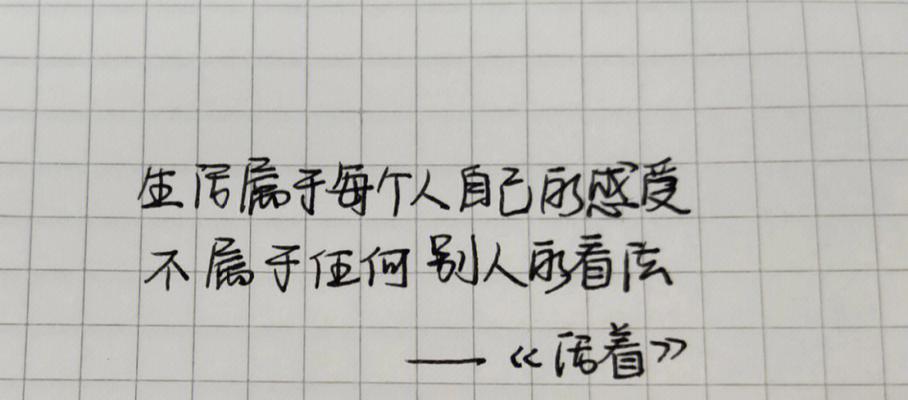 生活属于每个人自己的感受
不属于任何别人的看法
——《活着》